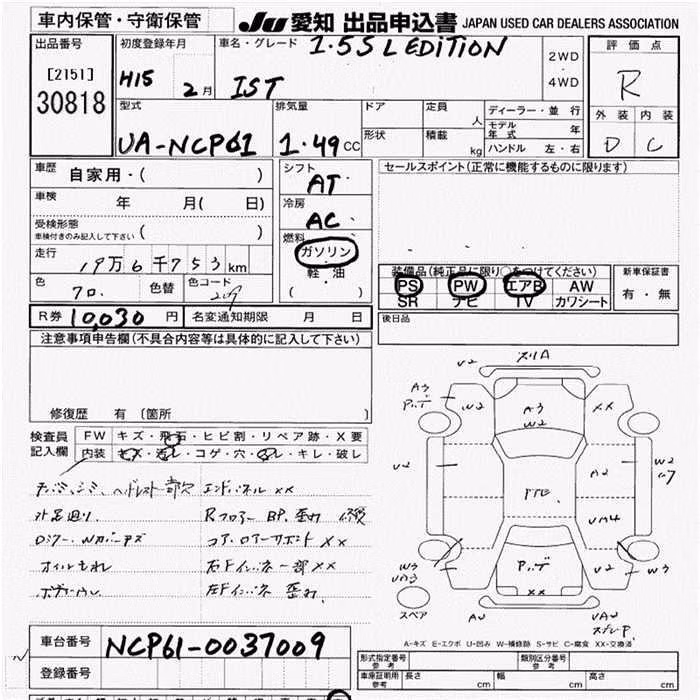 車内保管・守衛保管
JU 愛知 出品申込書 JAPAN USED CAR DEALERS ASSOCIATION
出品番号
[2151]
30818
初度登録年月
H15 2月
車名・グレード 1.5S L EDITION
IST
2WD
・
4WD
評価点
R
外装 内装
D C
型式
UA-NCP61
排気量
1.49 CC
ドア
形状
定員
人
積載
kg
ディーラー・並行
モデル年式 年
ハンドル 左・右
車歴 自家用・( )
車検 年 月( 日)
受検形態
車検付きのみ記入して下さい ( )
走行 19万6千753km
色 クロ. 色替 色コード 209
シフト
AT
冷房
AC
燃料
ガソリン
軽・油
( )
セールスポイント(正常に機能するものに限ります)
装備品(純正品に限り○をつけてください)
PS PW エアB AW
SR ナビ TV カワシート
新車保証書
有・無
R券 10,030 円 名変通知期限 月 日
後日品
注意事項申告欄(不具合内容等は具体的に記入して下さい)
修復歴 有〔箇所 〕
検査員記入欄
FW キズ・飛石・ヒビ割・リペア跡・X要
内装 キズ・汚レ・コゲ・穴・スレ・キレ・破レ
エンドパネル XX
外品廻り.
Rフロアー BP.
コア.ロアーサポート XX
オイルもれ
右Fインパネ一部 XX
左Fインパネ
V2
A3
W2
A3
W2
XX
V2
A2
W2
VA4
V2
W3
VA3
W3
XX
VA2
VA2
スペア
A-キズ E-エクボ U-凹み W-補修跡 S-サビ C-腐食 XX-交換済
車台番号 NCP61-0037009
登録番号
形式指定番号 参考
類別区分番号 参考
車庫証明用 参考 長さ cm 幅 cm 高さ cm